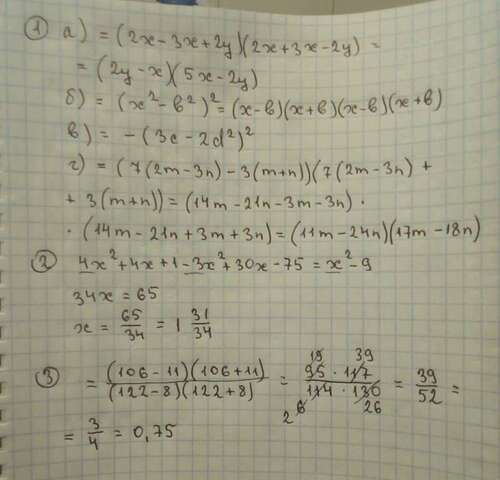 ① а) = (2x - 3x + 2y)(2x + 3x - 2y) =
= (2y - x)(5x - 2y)
б) = (x² - в²)² = (x - в)(x + в)(x - в)(x + в)
в) = - (3c - 2d²)²
г) = (7(2m - 3n) - 3(m+n))(7(2m - 3n) +
+ 3(m+n)) = (14m - 21n - 3m - 3n) ·
· (14m - 21n + 3m + 3n) = (11m - 24n)(17m - 18n)
② 4x² + 4x + 1 - 3x² + 30x - 75 = x² - 9
34x = 65
x = 65/34 = 1 31/34
③ = (106 - 11)(106 + 11)/(122 - 8)(122 + 8) = 95 · 117/114 · 130 = 39/52 =
19 39
2 6 26
= 3/4 = 0,75